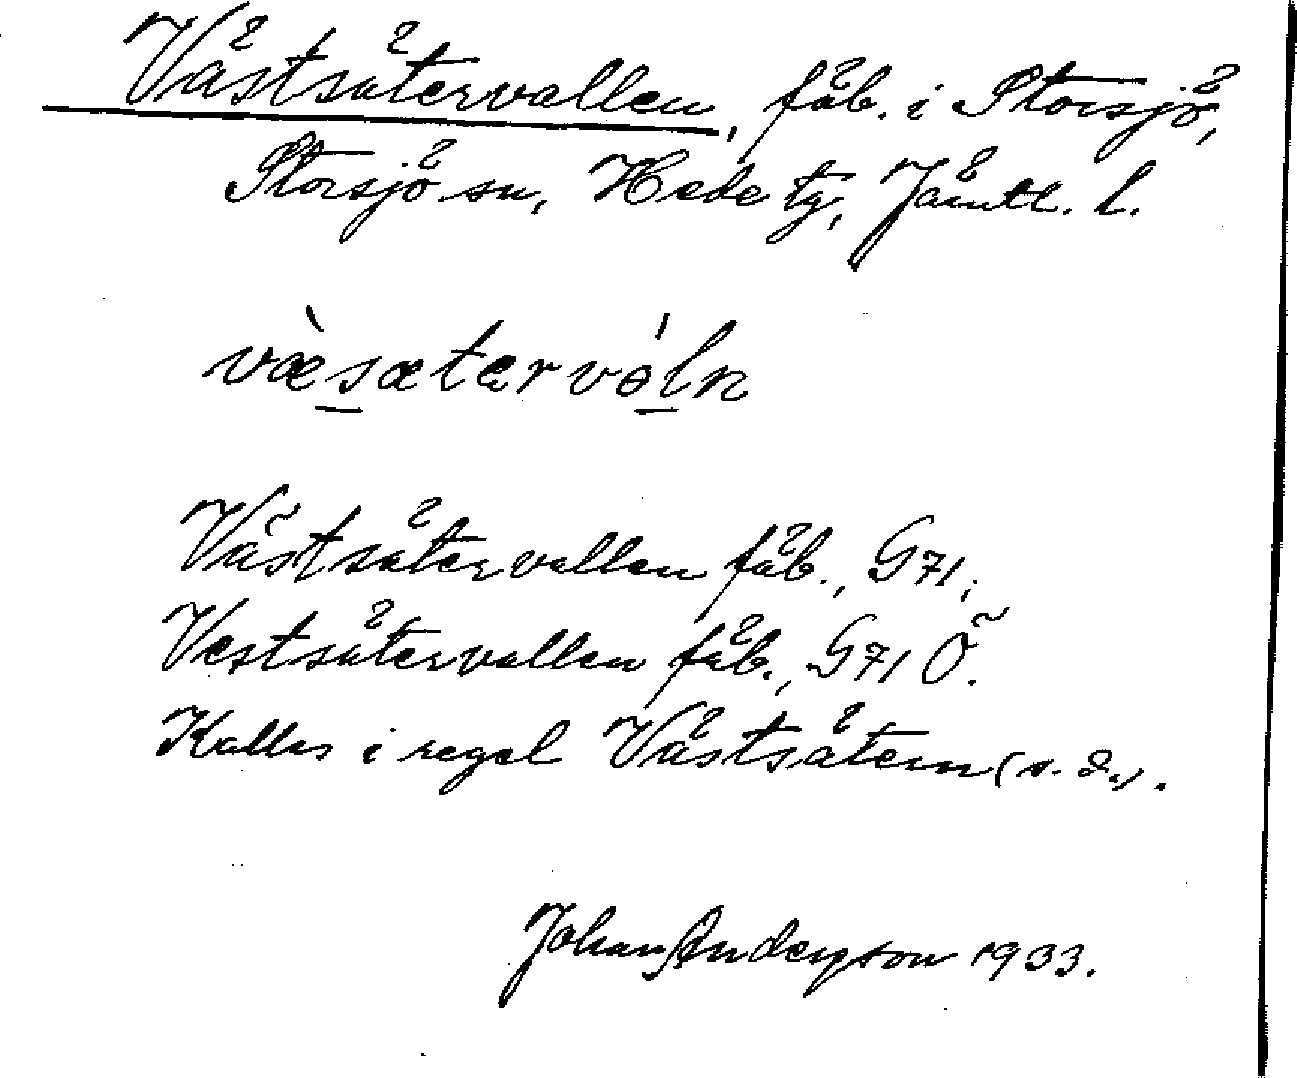 Västsätervallen, fäb. i Storsjö,
Storsjö sn, Hede tg, Jämtl. l.
væ̀sætervόln
Västsätervallen fäb., G71;
Vestsätervallen fäb., G71 Ö.
Kallas i regel Västsätern (s. d.).
Johan Anderson 1933.